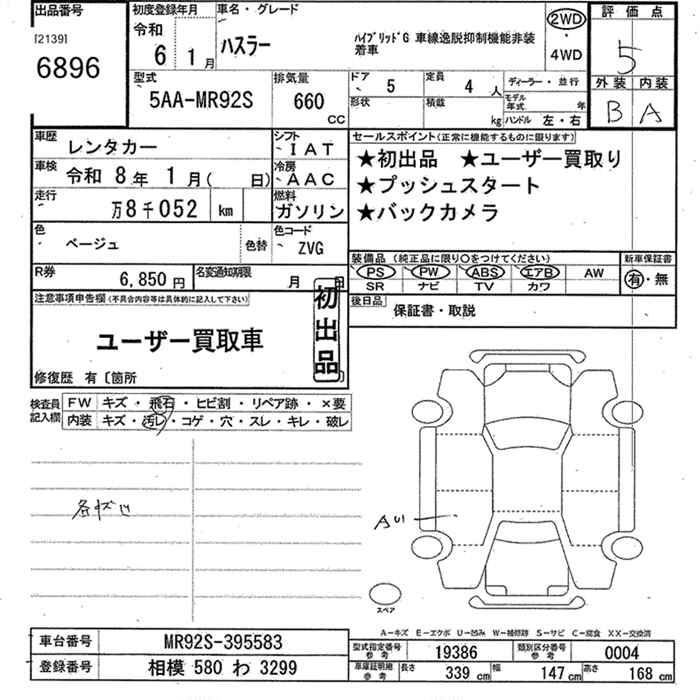 出品番号 初度登録年月 車名・グレード 評価点
[2139] 令和 ハイブリッドG 車線逸脱抑制機能非装着車 2WD
6896 6 1月 ハスラー ・4WD 5
型式 排気量 ドア 5 定員 4人 ディーラー・並行 外装 内装
5AA-MR92S 660 CC 形状 積載 kg モデル年式 年 ハンドル 左・右 B A
車歴 レンタカー シフト IAT セールスポイント(正常に機能するものに限ります)
車検 令和 8年 1月( 日) 冷房 AAC ★初出品 ★ユーザー買取り
走行 万8千052 km 燃料 ガソリン ★プッシュスタート
★バックカメラ
色 ベージュ 色替 色コード ZVG
装備品(純正品に限り○をつけてください) 新車保証書
R券 6,850円 名変通知期限 月 日 PS PW ABS エアB AW 有・無
SR ナビ TV カワ
注意事項申告欄(不具合内容等は具体的に記入して下さい) 初出品 後日品 保証書・取説
ユーザー買取車
修復歴 有〔箇所
検査員記入欄 FW キズ・飛石・ヒビ割・リペア跡・×要
内装 キズ・汚レ・コゲ・穴・スレ・キレ・破レ
AU1
スペア
A−キズ E−エクボ U−凹み W−補修跡 S−サビ C−腐食 XX−交換済
車台番号 MR92S-395583 型式指定番号 参考 19386 類別区分番号 参考 0004
登録番号 相模 580 わ 3299 車庫証明用 参考 長さ 339 cm 幅 147 cm 高さ 168 cm